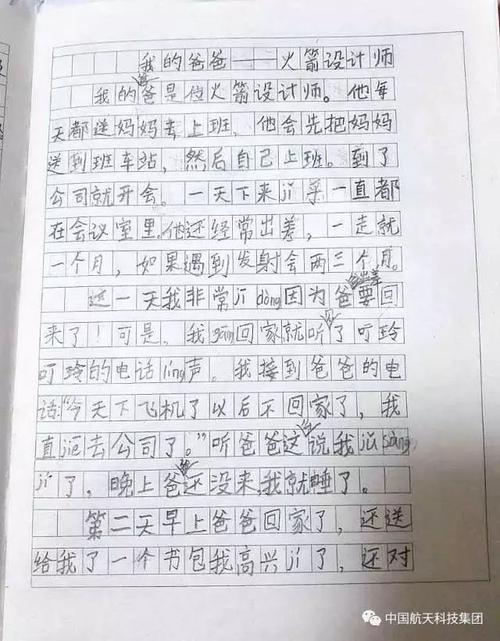 我的爸爸——火箭设计师
我的爸爸是位火箭设计师。他每
天都送妈妈去上班，他会先把妈妈
送到班车站，然后自己上班。到了
公司就开会。一天下来jī 乎一直都
在会议室里。他还经常出差，一走就
一个月，如果遇到发射会两三个月。
这一天我非常jī dòng因为爸爸出差要回
来了！可是，我gāng回家就听到了叮玲
叮玲的电话líng声。我接到爸爸的电
话：“今天下飞机了以后不回家了，我
直jiē去公司了。”听爸爸这么说我jǔ sàng
jí了，晚上爸爸还没来我就睡了。
第二天早上爸爸回家了，还送
给我了一个书包我高兴jí了，还对
中国航天科技集团